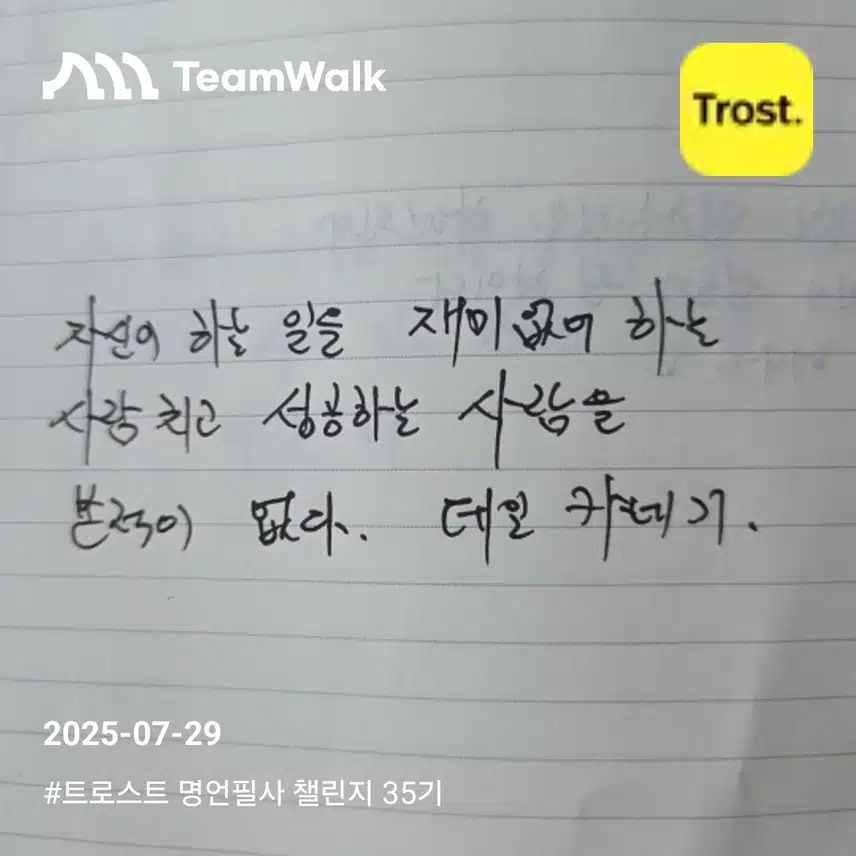 TeamWalk
Trost.
자신이 하는 일을 재미없어 하는
사람 치고 성공하는 사람을
본적이 없다. 데일 카네기.
2025-07-29
#트로스트 명언필사 챌린지 35기